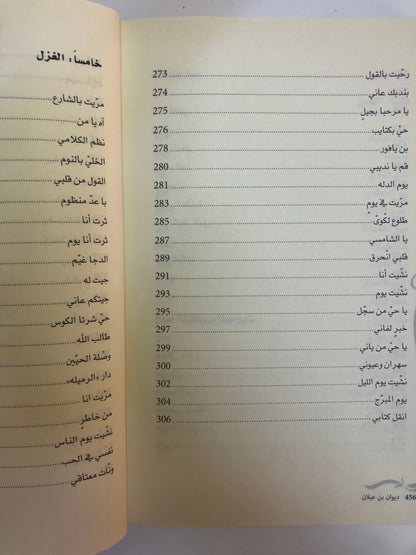 رحّبت بالقول 273
بندبك عاني 274
يا مرحبا بجيلٍ 275
حيّ بكتايب 276
بن يافور 278
قم يا نديبي 280
يوم الدله 281
مرّيت في يومٍ 283
طلوع لكوىّ 285
يا الشامسي 287
قلبي انحرق 289
نشّيت أنا 291
نشّيت يوم 293
يا حيّ من سجّل 295
خبرٍ لفاني 297
يا حيّ من ياني 299
سهران وعيوني 300
نشّيت يوم الليل 302
يوم المبرّح 304
انقل كتابي 306
456 ديوان بن عبلان
خامساً، الغزل
مرّيت بالشارع
آه يا من
نظم الكلامي
الخليّ بالنوم
القول من قلبي
يا عدّ منظوم
ثرت أنا
ثرت أنا يوم
الدجا غيّم
جيت له
جيتكم عاني
حيّ شرتا الكوس
طالب الله
وصْلة الحبّين
دار «الرميله»
مرّيت انا
من خاطرٍ
نشّيت يوم الناس
نفسي في الحب
ونّات معتاقي